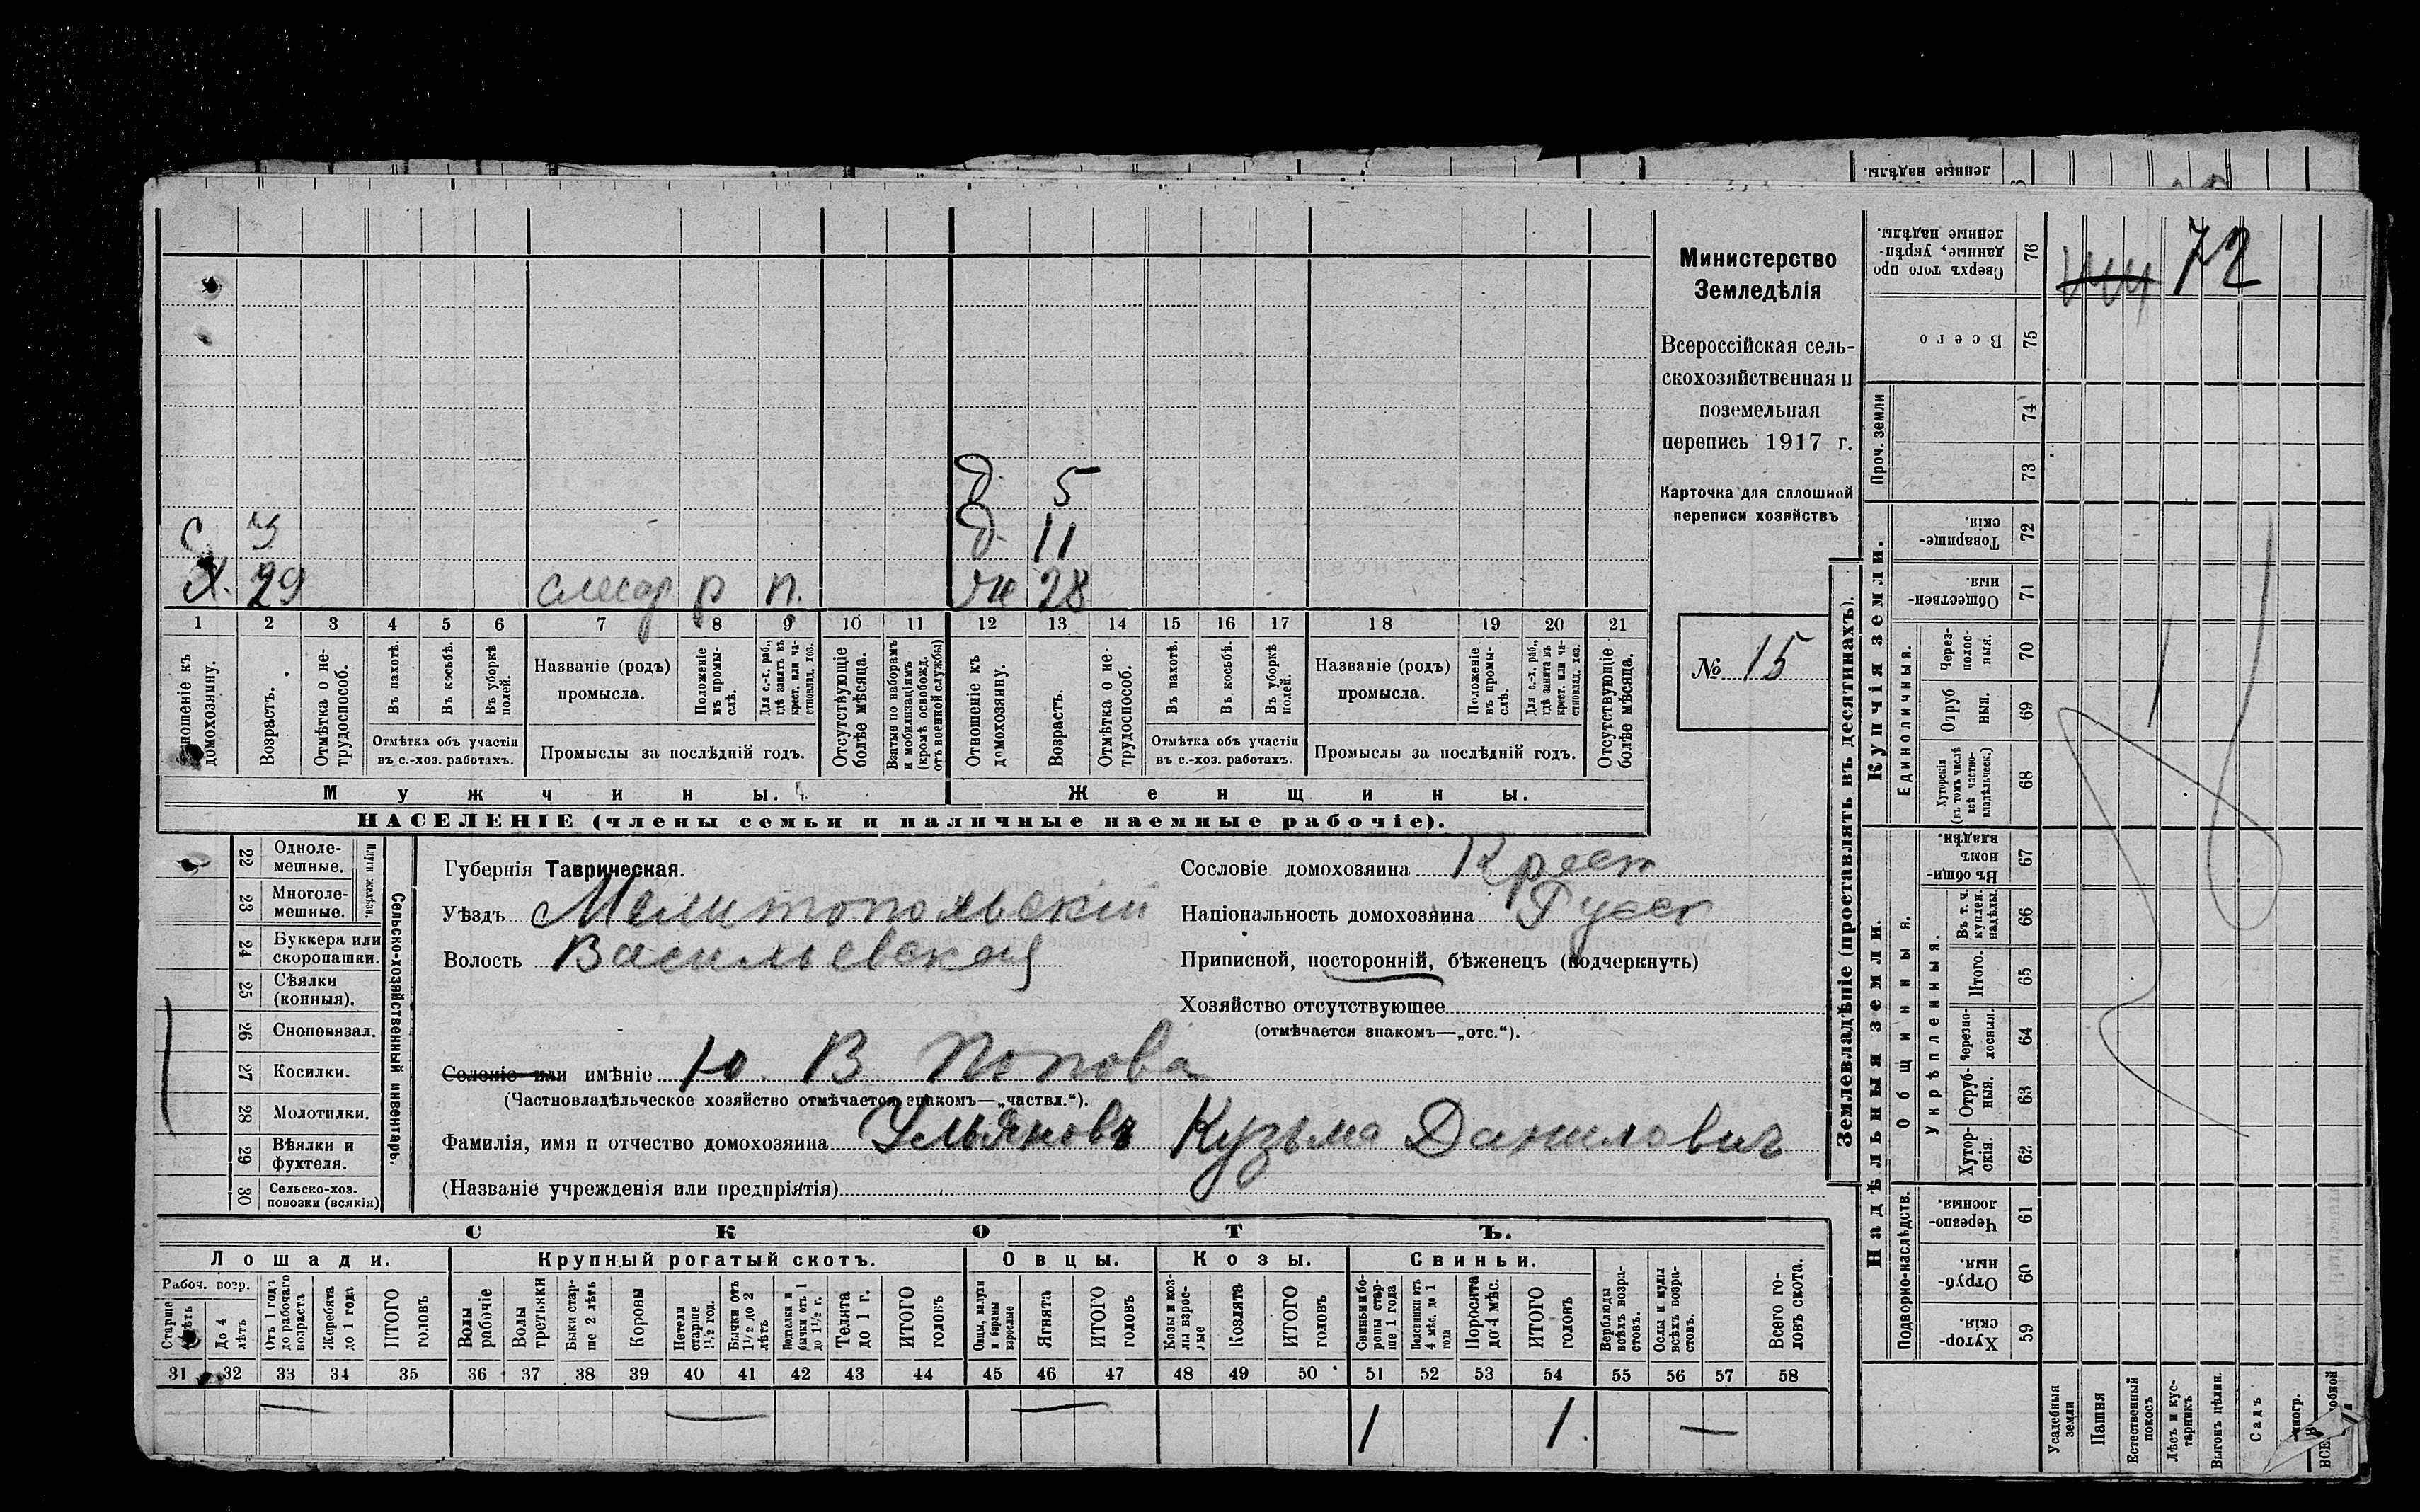 ленные надѣлы.
Министерство
Земледѣлія
Всероссійская сель-
скохозяйственная и
поземельная
перепись 1917 г.
Карточка для сплошной
переписи хозяйствъ
№ 15
д. 5
с 3 д. 11
х. 29 слесар р п. ж 28
1 2 3 4 5 6 7 8 9 10 11 12 13 14 15 16 17 18 19 20 21
Отношеніе къ домохозяину.
Возрастъ.
Отмѣтка о нетрудоспособ.
Въ пахотѣ.
Въ косьбѣ.
Въ уборкѣ полей.
Отмѣтка объ участіи
въ с.-хоз. работахъ.
Названіе (родъ)
промысла.
Положеніе въ промыслѣ.
Для с.-х. раб., гдѣ занятъ въ крест. или частновлад. хоз.
Промыслы за послѣдній годъ.
Отсутствующіе болѣе мѣсяца.
Взятые по наборамъ и мобилизаціямъ (кромѣ освобожд. отъ военной службы)
Отношеніе къ домохозяину.
Возрастъ.
Отмѣтка о нетрудоспособ.
Въ пахотѣ.
Въ косьбѣ.
Въ уборкѣ полей.
Отмѣтка объ участіи
въ с.-хоз. работахъ.
Названіе (родъ)
промысла.
Положеніе въ промыслѣ.
Для с.-х. раб., гдѣ занятъ въ крест. или частновлад. хоз.
Промыслы за послѣдній годъ.
Отсутствующіе болѣе мѣсяца.
Мужчины. Женщины.
НАСЕЛЕНІЕ (члены семьи и наличные наемные рабочіе).
22 Одноле-
мешные.
23 Многоле-
мешные.
Плуги желѣзн.
24 Буккера или
скоропашки.
25 Сѣялки
(конныя).
26 Сноповязал.
27 Косилки.
28 Молотилки.
29 Вѣялки и
фухтеля.
30 Сельско-хоз.
повозки (всякія)
Сельско-хозяйственный инвентарь.
Губернія Таврическая.
Уѣздъ Мелитопольскій
Волость Васильевская
Сословіе домохозяина Крест
Національность домохозяина Русск
Приписной, посторонній, бѣженецъ (подчеркнуть)
Хозяйство отсутствующее
(отмѣчается знакомъ—„отс.“).
Селеніе или имѣніе Ю. В. Попова
(Частновладѣльческое хозяйство отмѣчается знакомъ—„частвл.“).
Фамилія, имя и отчество домохозяина Ульяновъ Кузьма Данилович
(Названіе учрежденія или предпріятія)
СКОТЪ.
Лошади. Крупный рогатый скотъ. Овцы. Козы. Свиньи.
Рабоч. возр.
Старше 4 лѣтъ
До 4 лѣтъ
Отъ 1 года до рабочаго возраста
Жеребята до 1 года
ИТОГО головъ
Волы рабочіе
Волы третьяки
Быки старше 2 лѣтъ
Коровы
Нетели старше 1½ год.
Бычки отъ 1½ до 2 лѣтъ
Подтелки и бычки отъ 1 до 1½ г.
Телята до 1 г.
ИТОГО головъ
Овцы, валухи и бараны взрослые
Ягнята
ИТОГО головъ
Козы и козлы взрослые
Козлята
ИТОГО головъ
Свиньи и бороны старше 1 года
Подсвинки отъ 4 мѣс. до 1 года
Поросята до 4 мѣс.
ИТОГО головъ
Верблюды всѣхъ возрастовъ.
Ослы и мулы всѣхъ возрастовъ.
Всего головъ скота.
31 32 33 34 35 36 37 38 39 40 41 42 43 44 45 46 47 48 49 50 51 52 53 54 55 56 57 58
— — — 1 1 —
Землевладѣніе (проставлять въ десятинахъ).
Сверхъ того проданные, укрѣпленные надѣлы. 76
72
Всего 75
Проч. земли 74
73
Купчія земли.
Товарищескія. 72
Общественныя. 71
Единоличныя.
Черезполосныя. 70
Отрубныя. 69
Хуторскія (въ томъ числѣ всѣ частновладѣльческ.) 68
Надѣльныя земли.
Общинныя.
Въ общинномъ владѣн. 67
Укрѣпленныя.
Въ т. ч. куплен. надѣлы. 66
Итого. 65
Черезполосныя. 64
Отрубныя. 63
Хуторскія. 62
Подворно-наслѣдств.
Черезполосныя. 61
Отрубныя. 60
Хуторскія. 59
Усадебныя земли
Пашня
Естественный покосъ
Лѣсъ и кустарникъ
Выгонъ цѣлин.
Садъ